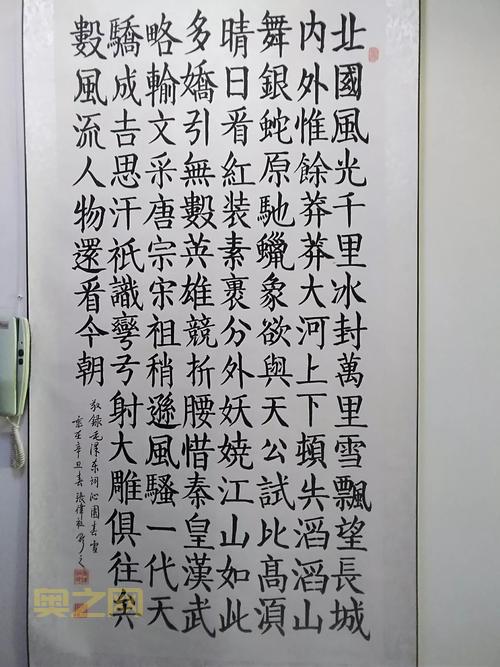 北國風光千里冰封萬里雪飄望長城
内外惟餘莽莽大河上下頓失滔滔山
舞銀蛇原馳蠟象欲與天公試比高須
晴日看紅装素裹分外妖嬈江山如此
多嬌引無數英雄競折腰惜秦皇漢武
略輸文采唐宗宋祖稍遜風騷一代天
驕成吉思汗祇識彎弓射大雕俱往矣
數風流人物還看今朝
敬錄毛澤東詞沁園春雪
歲在辛丑春張偉